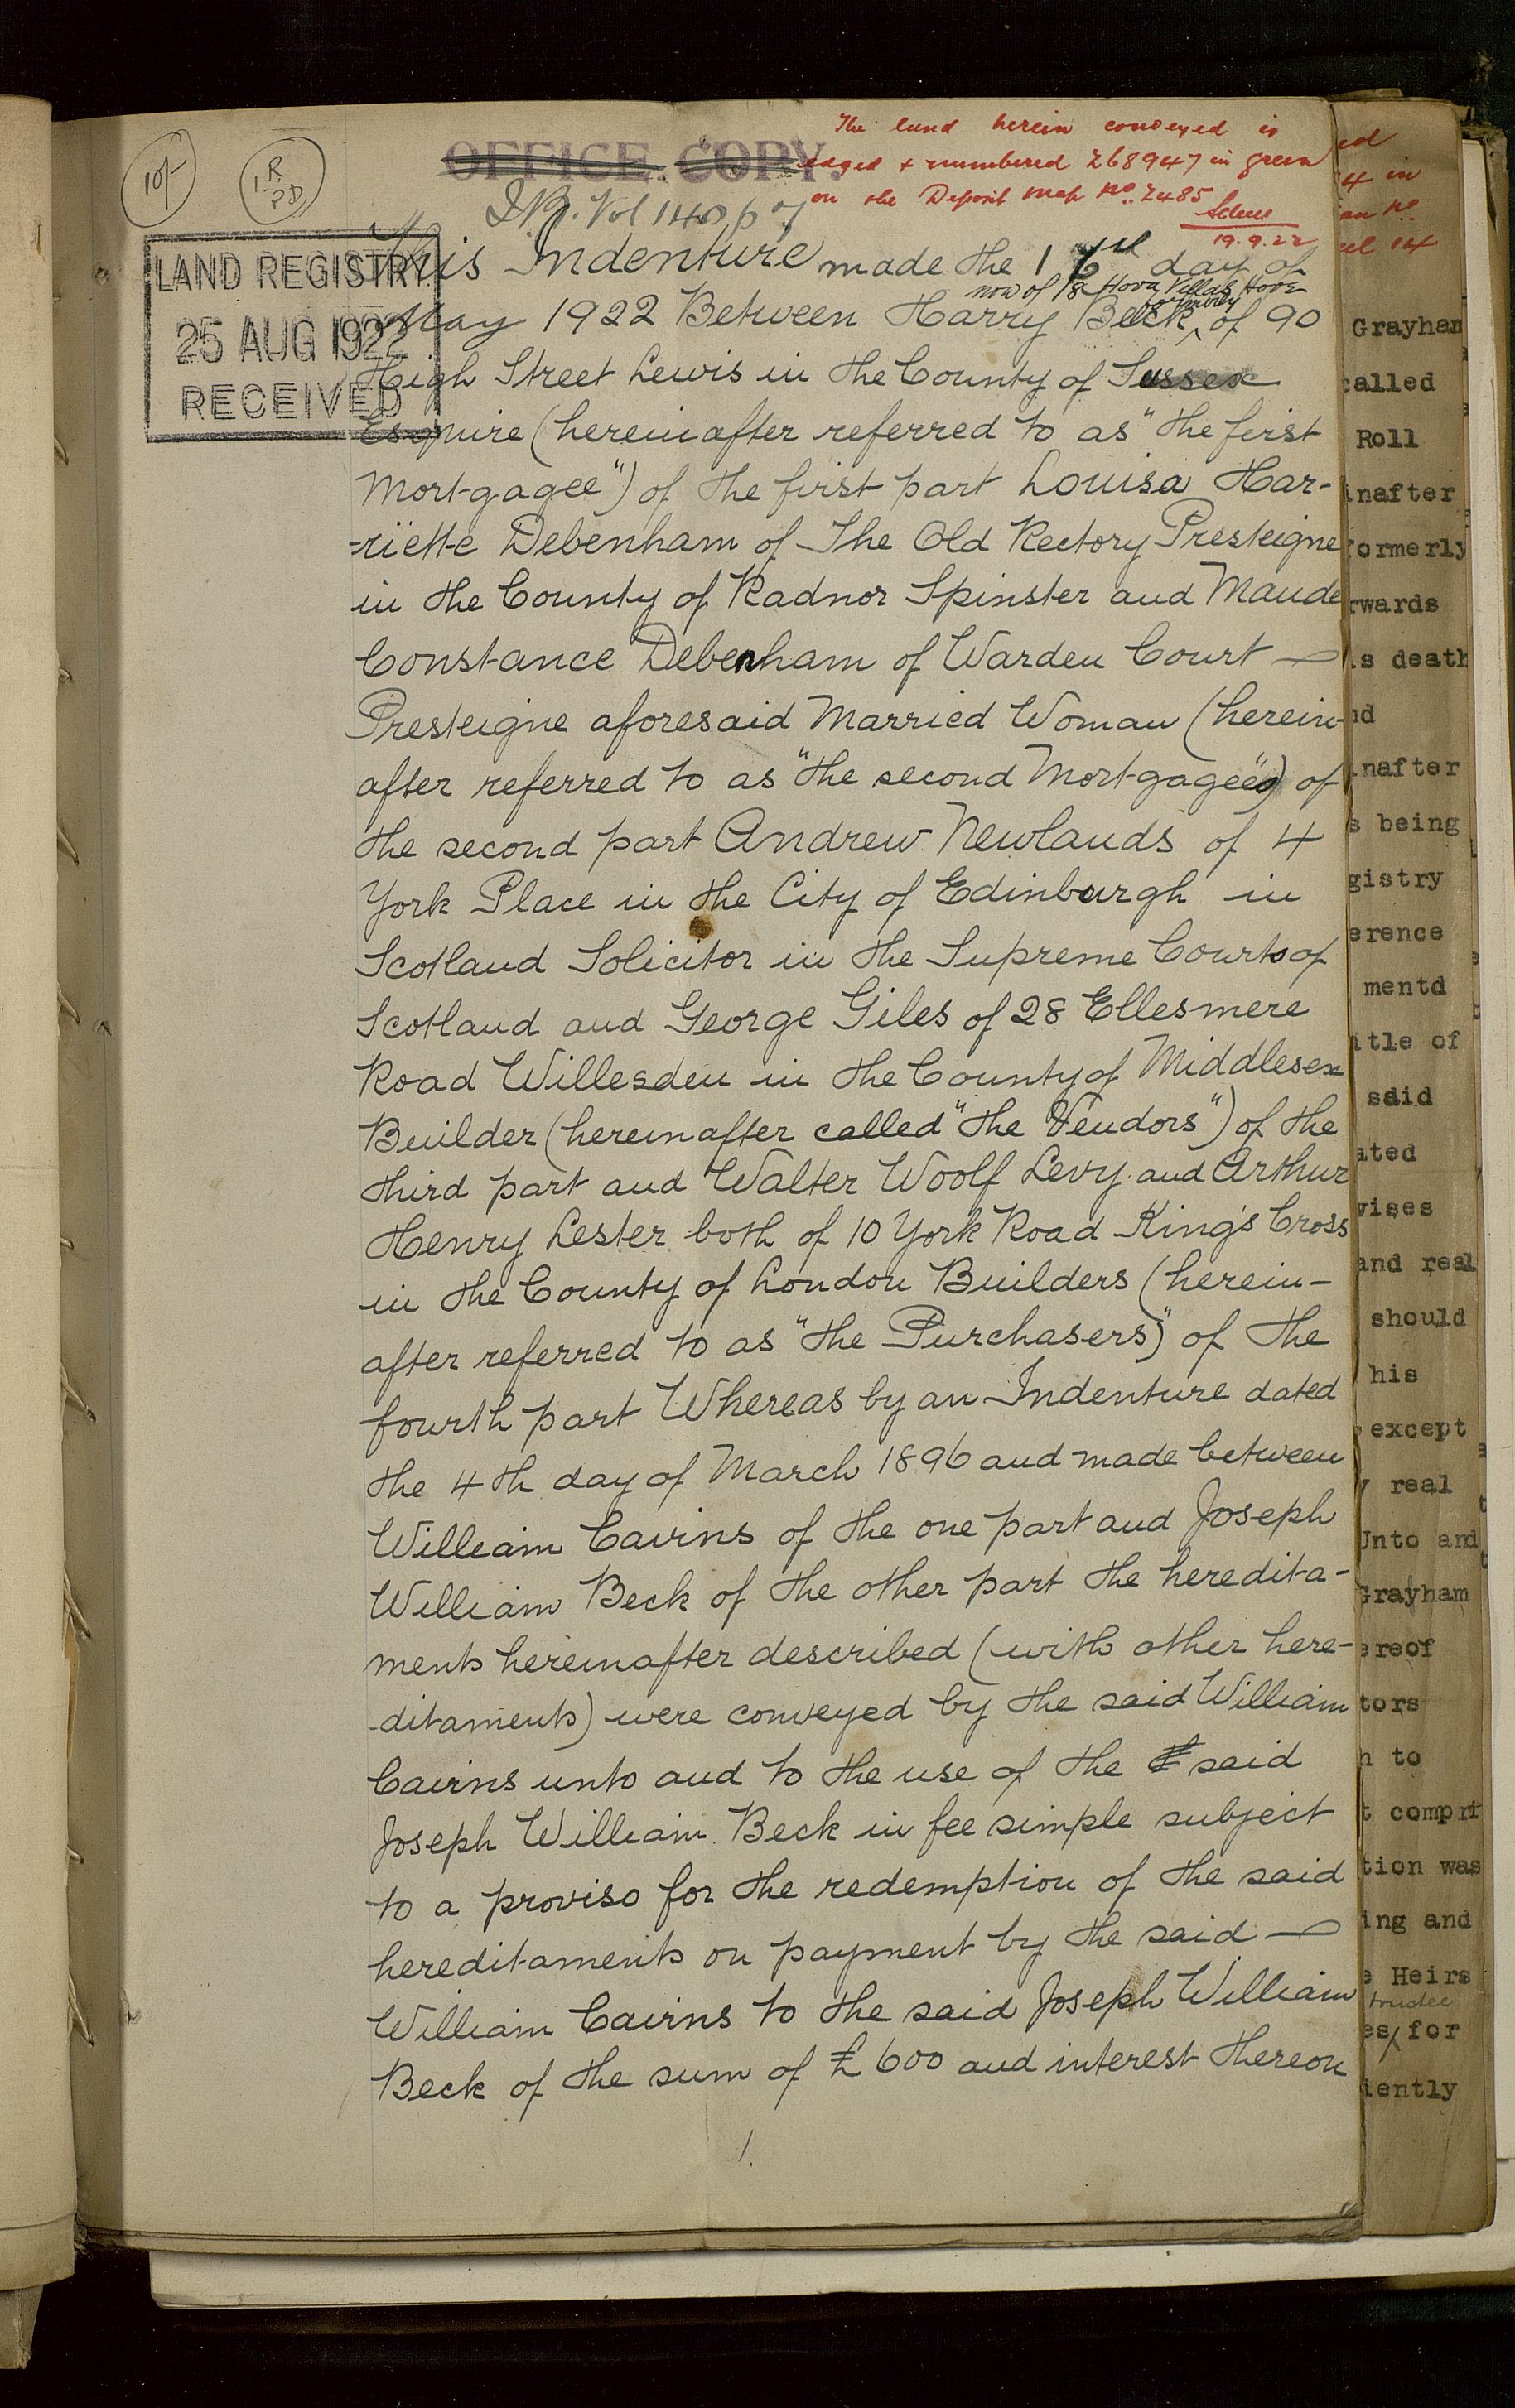 10/-
I.R.
P.D.
OFFICE COPY.
The land herein conveyed is
edged & numbered Z68947 in green
on the Deposit Map No. Z485
19.9.22
LAND REGISTRY
25 AUG 1922
RECEIVED
This Indenture made the day of
now of 18 Hova Villas Hove
formerly
May 1922 Between Harry Beck of 90
High Street Lewis in the County of Sussex
Esquire (hereinafter referred to as "the first
Mortgagee") of the first part Louisa Har-
-riette Debenham of The Old Rectory Presteigne
in the County of Radnor Spinster and Maude
Constance Debenham of Warden Court
Presteigne aforesaid Married Woman (herein-
after referred to as "the second Mortgagees") of
the second part Andrew Newlands of 4
York Place in the City of Edinburgh in
Scotland Solicitor in the Supreme Courts of
Scotland and George Giles of 28 Ellesmere
Road Willesden in the County of Middlesex
Builder (hereinafter called "the Vendors") of the
third part and Walter Woolf Levy and Arthur
Henry Lester both of 10 York Road King's Cross
in the County of London Builders (herein-
after referred to as "the Purchasers") of the
fourth part Whereas by an Indenture dated
the 4th day of March 1896 and made between
William Cairns of the one part and Joseph
William Beck of the other part the heredita-
ments hereinafter described (with other here-
-ditaments) were conveyed by the said William
Cairns unto and to the use of the said
Joseph William Beck in fee simple subject
to a proviso for the redemption of the said
hereditaments on payment by the said
William Cairns to the said Joseph William
Beck of the sum of £600 and interest thereon
1.
ed
4 in
an No
el 14
Grayham
called
Roll
inafter
formerly
rwards
is death
nd
inafter
s being
gistry
erence
mentd
itle of
said
ated
vises
and real
should
his
except
y real
Unto and
Grayham
ereof
tors
h to
t compri
tion was
ing and
e Heirs
trustee
es for
iently